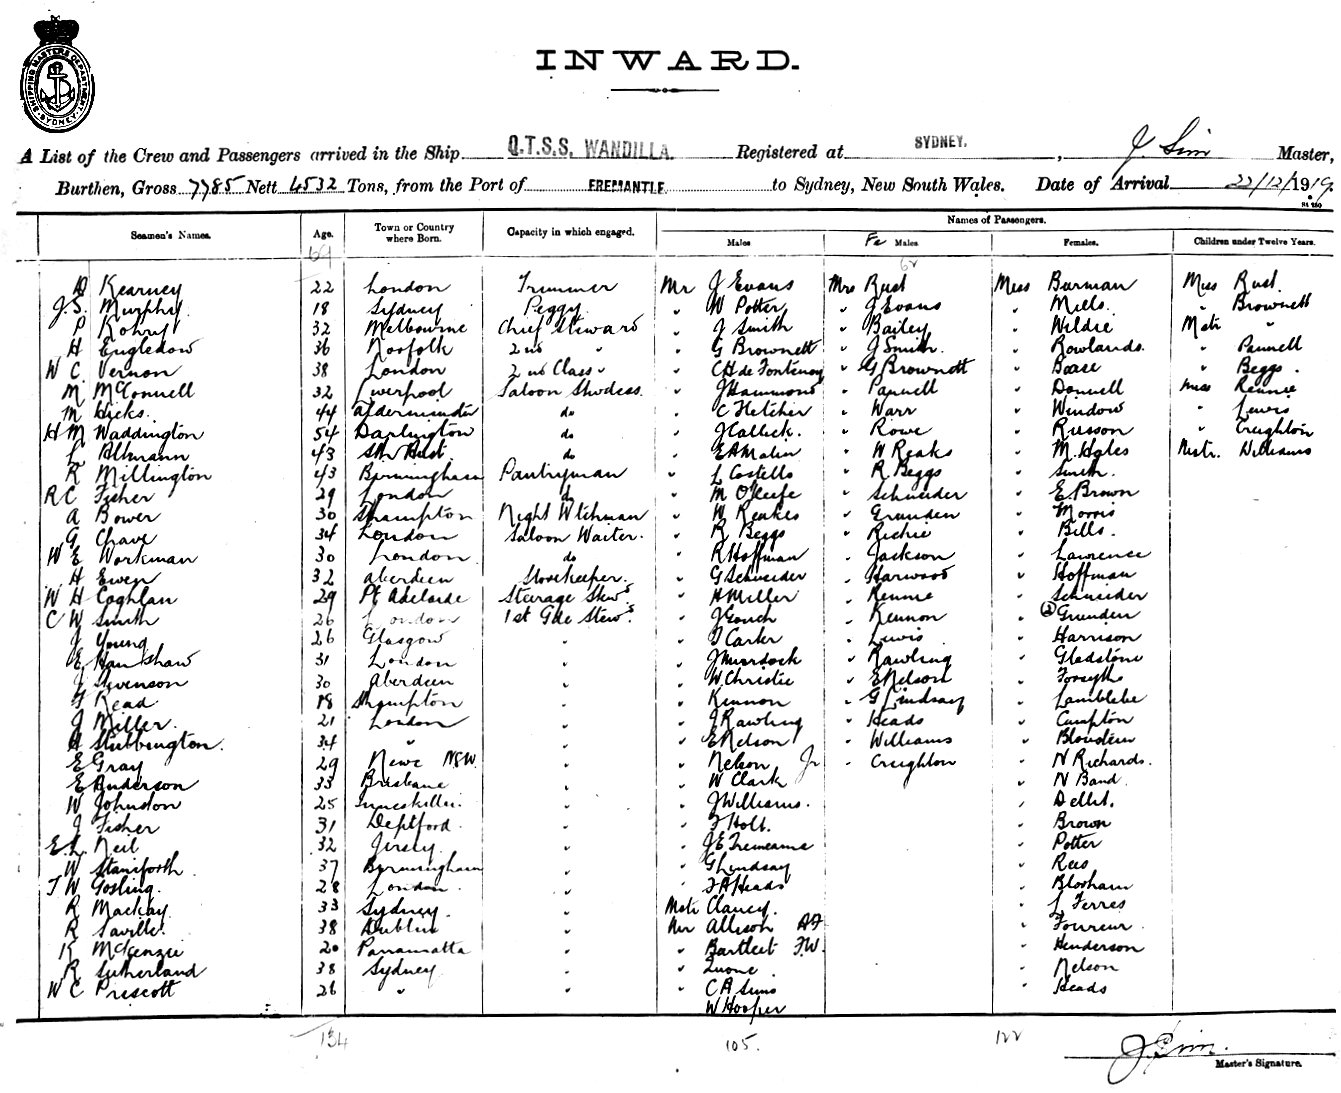 SHIPPING MASTERS DEPARTMENT. SYDNEY
INWARD.
A List of the Crew and Passengers arrived in the Ship Q.T.S.S. WANDILLA. Registered at SYDNEY. , J. Sim Master,
Burthen, Gross 7785 Nett 4532 Tons, from the Port of FREMANTLE to Sydney, New South Wales. Date of Arrival 22/12/1919.
Names of Passengers.
Seamen's Names. Age. Town or Country where Born. Capacity in which engaged. Males Fe Males Females. Children under Twelve Years.
D Kearney 22 London Trimmer Mr J Evans Mrs Rust Miss Burman Miss Rust
J.S. Murphy 18 Sydney Peggy " W Potter " J Evans " Mills " Brownett
P 32 Melbourne Chief Steward " J Smith " Bailey " Wildie Mstr "
H Engledow 36 Norfolk 2nd " " G Brownett " J Smith " Rowlands " Pannell
W C Vernon 38 London 2nd Class " " C H de Fontenoy " G Brownett " Boase " Beggs
M McConnell 32 Liverpool Saloon Stwdess " J Hammond " Pannell " Donnell Miss Rennie
M Hicks 44 do " C Fletcher " Warr " Window " Lewis
H M Waddington 54 Darlington do " J Callick " Rowe " Russon " Creighton
L Altmann 43 do " E A Malin " W Reaks " M. Hales Mstr. Williams
R Millington 43 Birmingham Pantryman " L Costello " R Beggs " Smith
R C Fisher 29 London do " M O'Keefe " Schneider " E Brown
A Bower 30 Sthampton Night Wtchman " W Reakes " Grunden " Morris
G Chave 34 London Saloon Waiter " R Beggs " Richie " Bills
W E Workman 30 London do " R Hoffman " Jackson " Lawrence
H Ewen 32 Aberdeen Storekeeper " G Schneider " Harwood " Hoffman
W H Coghlan 29 Pt Adelaide Steerage Stews " H Miller " Rennie " Schneider
C W Smith 26 London 1st Gde Stews " J Gouch " Kennon " (2) Grunden
J Young 26 Glasgow " " T Carter " Lewis " Harrison
E Hanshaw 31 London " " J Murdock " Rawling " Gladstone
J Stevenson 30 Aberdeen " " W Christie " E Nelson " Forsyth
T Read 18 Sthampton " " Kennon " G Lindsay "
J Miller 21 London " " J Rawling " Heads " Campton
H Stubbington 34 " " " E Nelson " Williams "
E Gray 29 Newc NSW " " Nelson Jr " Creighton " N Richards
E Anderson 33 Brisbane " " W Clark " N Band
W Johnson 25 " " J Williams "
J Fisher 31 Deptford " " J Holt " Brown
E L Neil 32 Jersey " " J E Tremeame " Potter
W Staniforth 37 Birmingham " " G Lindsay " Rees
T W Gosling 28 London " " J A Heads " Bloxham
R Mackay 33 Sydney " Mstr Clancy " L Ferres
R Saville 38 Dublin " Mr Allison A F "
K McKenzie 20 Parramatta " " Bartleet F.W. " Henderson
R Sutherland 38 Sydney " " " Nelson
W C Prescott 26 " " " C A Sims " Heads
W Hooper
134 105. 122
J. Sim
Master's Signature.